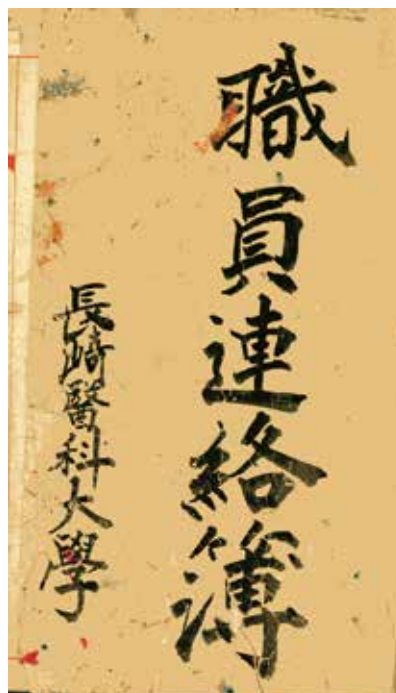 職員連絡簿
長崎醫科大學